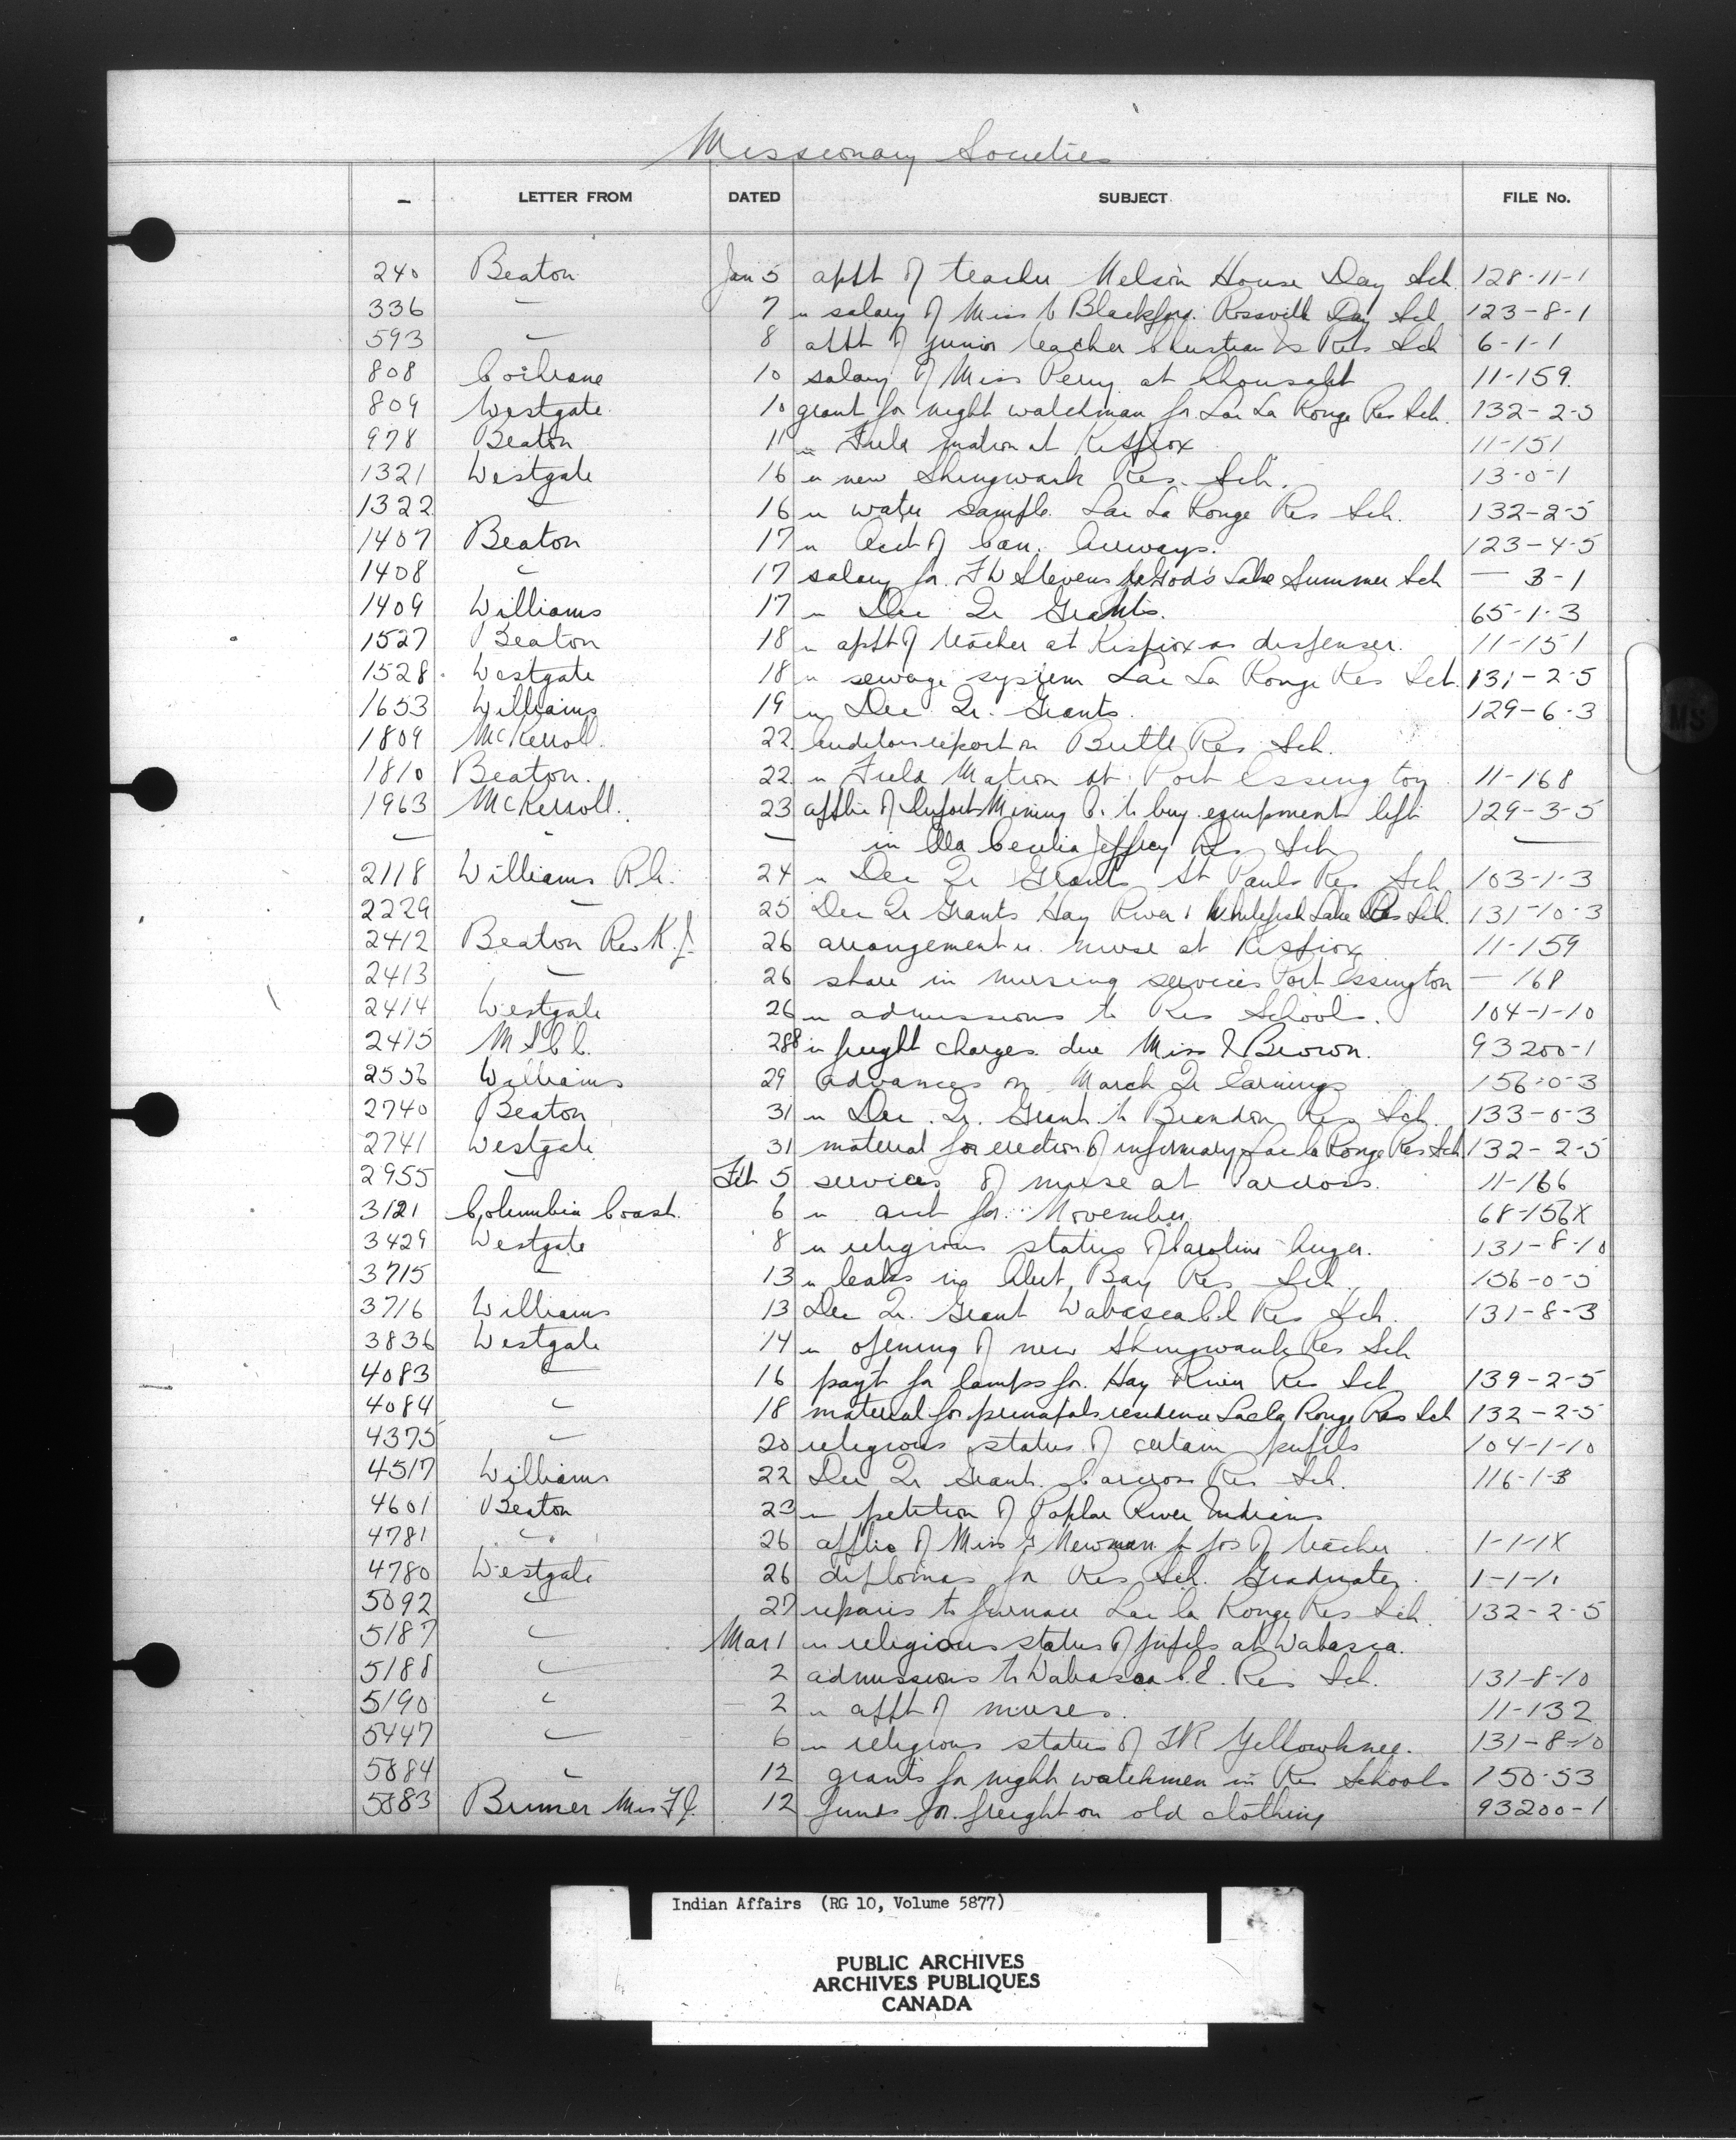 Missionary Societies
- LETTER FROM DATED SUBJECT FILE No.
240 Beaton Jan 5 appt of teacher Nelson House Day Sch. 128-11-1
336 — 7 re salary of Miss Blackford Rossville Day Sch 123-8-1
593 — 8 appt of junior teacher Res Sch 6-1-1
808 Cochrane 10 salary of Miss Perry at 11-159
809 Westgate 10 grant for night watchman for Lac La Ronge Res Sch. 132-2-5
978 Beaton 11 re Field matron at Kispiox 11-151
1321 Westgate 16 re new Shingwauk Res. Sch. 13-0-1
1322 — 16 re water sample Lac La Ronge Res Sch. 132-2-5
1407 Beaton 17 re Acct of Can. Airways. 123-4-5
1408 — 17 salary for Stevens God's Lake Summer Sch — 3-1
1409 Williams 17 re Dec Qr Grants. 65-1-3
1527 Beaton 18 re appt of teacher at Kispiox as dispenser. 11-151
1528 Westgate 18 re sewage system Lac La Ronge Res Sch. 131-2-5
1653 Williams 19 re Dec Qr. Grants. 129-6-3
1809 McKerroll 22 auditors report on Birtle Res Sch.
1810 Beaton. 22 re Field Matron at Port Essington 11-168
1963 McKerroll. 23 applic of Mining Co. to buy equipment left 129-3-5
— - — in Cecilia Jeffrey Res Sch —
2118 Williams R.h. 24 re Dec Qr Grants St Pauls Res Sch 103-1-3
2229 — 25 Dec Qr Grants Hay River & Whitefish Lake Res Sch. 131-10-3
2412 Beaton Rev K.J. 26 arrangement re nurse at Kispiox 11-159
2413 — 26 share in nursing services Port Essington — 168
2414 Westgate 26 re admissions to Res Schools. 104-1-10
2415 M S C C. 28 re freight charges due Miss Brown. 93200-1
2556 Williams 29 advances on March Qr Earnings 156-0-3
2740 Beaton 31 re Dec. Qr. Grant to Brandon Res Sch. 133-0-3
2741 Westgate 31 material for erection of infirmary Lac la Ronge Res Sch 132-2-5
2955 — Feb 5 services of nurse at Carcross. 11-166
3121 Columbia Coast. 6 re acct for November. 68-156X
3429 Westgate 8 re religious status of Caroline Auger. 131-8-10
3715 — 13 re leaks in Alert Bay Res Sch. 156-0-5
3716 Williams 13 Dec Qr. Grant Wabasca C.E Res Sch. 131-8-3
3836 Westgate 14 re opening of new Shingwauk Res Sch
4083 — 16 payt for lamps for Hay River Res Sch 139-2-5
4084 — 18 material for principals residence Lac la Ronge Res Sch 132-2-5
4375 — 20 religious status of certain pupils 104-1-10
4517 Williams 22 Dec Qr Grant. Carcross Res Sch. 116-1-3
4601 Beaton 23 re petition of Poplar River Indians
4781 — 26 applic of Miss Newman for pos of teacher 1-1-1X
4780 Westgate 26 diplomas for Res Sch. Graduates. 1-1-10
5092 — 27 repairs to furnace Lac la Ronge Res Sch. 132-2-5
5187 — Mar 1 re religious status of pupils at Wabasca.
5188 — 2 admissions to Wabasca C.E. Res Sch. 131-8-10
5190 — 2 re appt of nurses. 11-132
5447 — 6 re religious status of Yellowknee. 131-8-10
5884 — 12 grants for night watchmen in Res Schools 150-53
5883 Mrs F J. 12 funds for freight on old clothing 93200-1
Indian Affairs (RG 10, Volume 5877)
PUBLIC ARCHIVES
ARCHIVES PUBLIQUES
CANADA